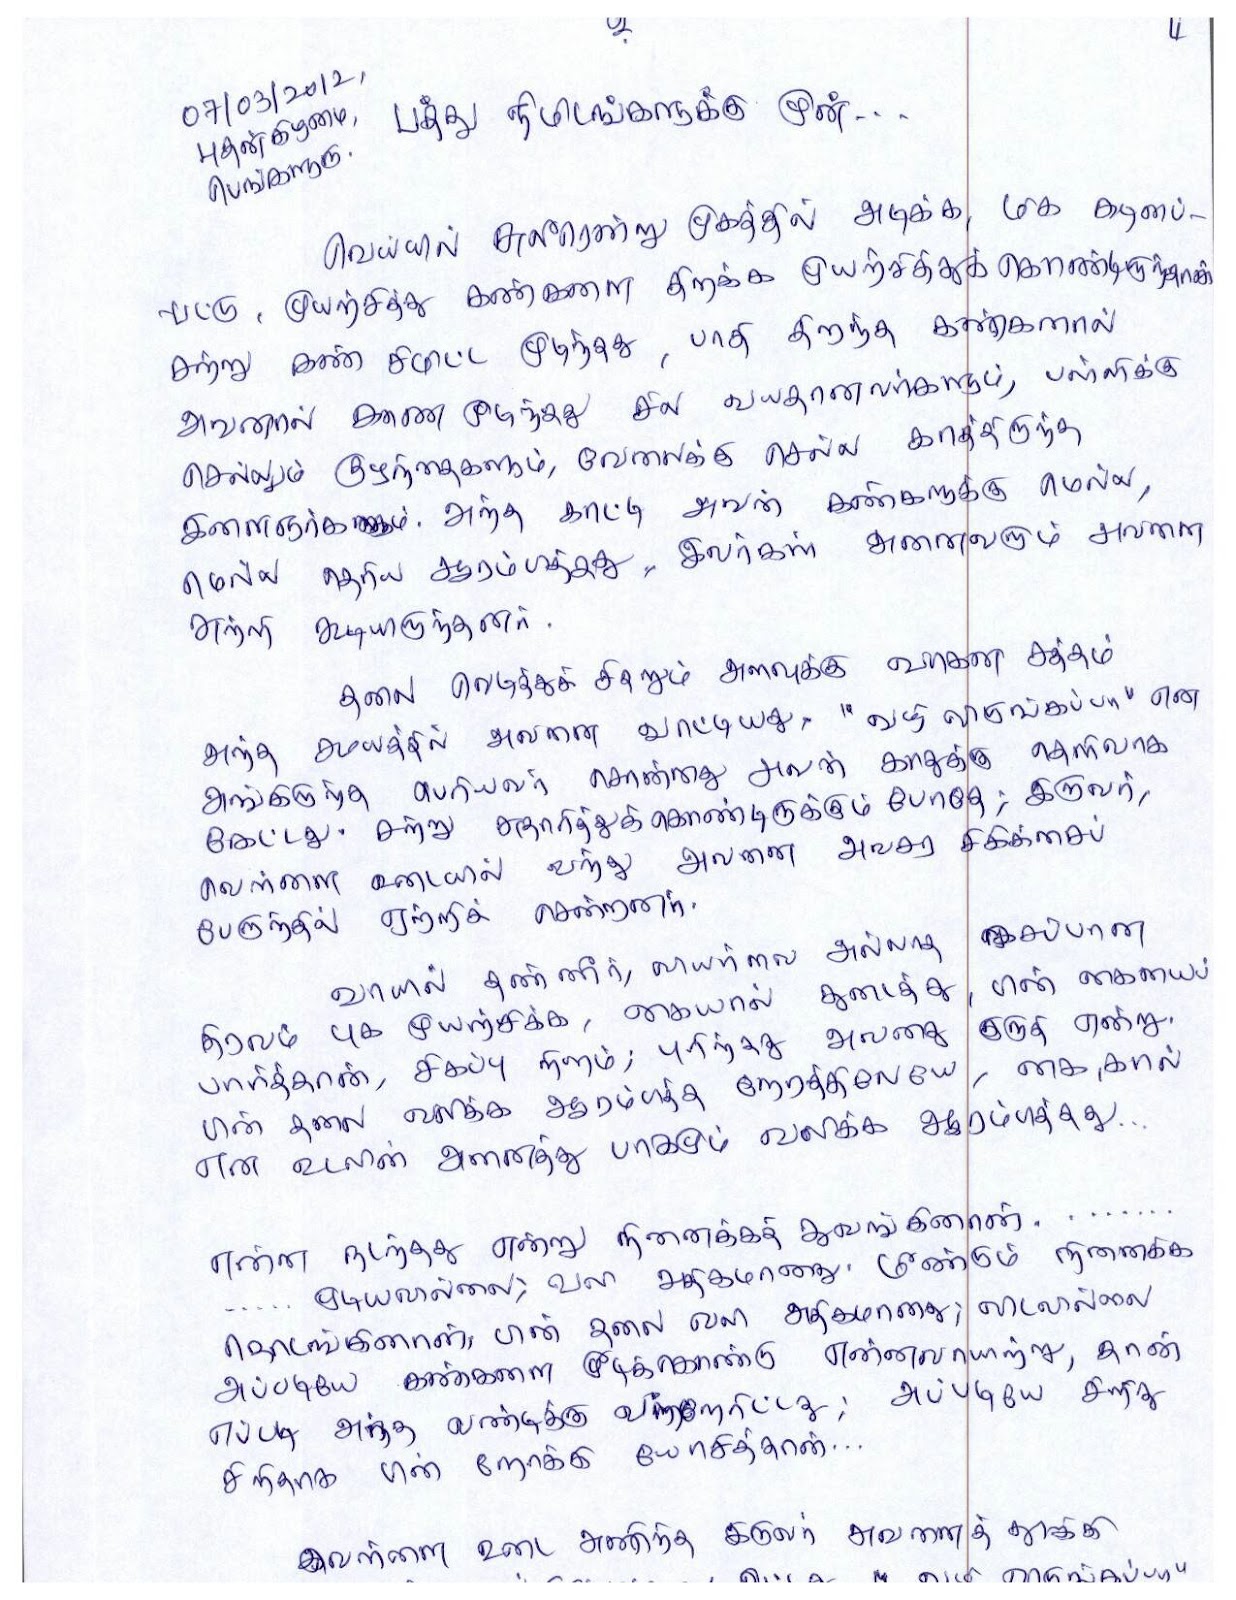 உ
07/03/2012,
புதன்கிழமை,
பெங்களூரு.
பத்து நிமிடங்களுக்கு முன்...
வெய்யில் சுளீரென்று முகத்தில் அடிக்க, மிக கடினப்-
பட்டு, முயற்சித்து கண்களை திறக்க முயற்சித்துக்கொண்டிருந்தான்
சற்று கண் சிமிட்ட முடிந்தது, பாதி திறந்த கண்களால்
அவனால் காண முடிந்தது சில வயதானவர்களும், பள்ளிக்கு
செல்லும் குழந்தைகளும், வேலைக்கு செல்ல காத்திருந்த
இளைஞர்களும். அந்த காட்டி அவன் கண்களுக்கு மெல்ல,
மெல்ல தெரிய ஆரம்பித்தது, இவர்கள் அனைவரும் அவனை
சுற்றி கூடியிருந்தனர்.
தலை வெடித்துச் சிதறும் அளவுக்கு வாகன சத்தம்
அந்த சமயத்தில் அவனை வாட்டியது. "வழி விடுங்கப்பா" என
அங்கிருந்த பெரியவர் சொன்னது அவன் காதுக்கு தெளிவாக
கேட்டது. சற்று சுதாரித்துக்கொண்டிருக்கும் போதே; இருவர்,
வெள்ளை உடையில் வந்து அவனை அவசர சிகிச்சைப்
பேருந்தில் ஏற்றிச் சென்றனர்.
வாயில் தண்ணீர், வியர்வை அல்லாத கசப்பான
திரவம் புக முயற்சிக்க, கையால் துடைத்து, பின் கையைப்
பார்த்தான், சிகப்பு நிறம்; புரிந்தது அவனது குருதி என்று.
பின் தலை வலிக்க ஆரம்பித்த நேரத்திலேயே, கை, கால்
என உடலின் அனைத்து பாகமும் வலிக்க ஆரம்பித்தது...
என்ன நடந்தது என்று நினைக்கத் துவங்கினான். .......
..... முடியவில்லை; வலி அதிகமானது. மீண்டும் நினைக்க
தொடங்கினான்; பின் தலை வலி அதிகமானது; விடவில்லை
அப்படியே கண்களை மூடிக்கொண்டு என்னவாயிற்று, தான்
எப்படி அந்த வண்டிக்கு வரநேரிட்டது; அப்படியே சிறிது
சிறிதாக பின் நோக்கி யோசித்தான்...
வெள்ளை உடை அணிந்த இருவர் அவனைத் தூக்கி
"வழி விடுங்கப்பா"